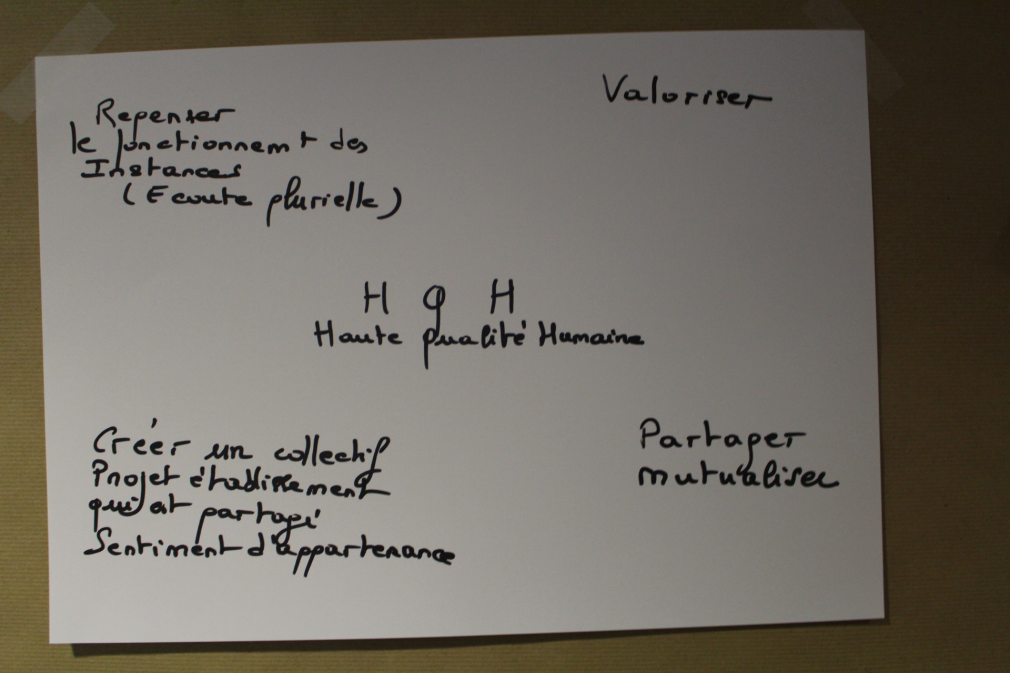 Repenser
le fonctionnement des
Instances
(Ecoute plurielle)
Valoriser
H q H
Haute qualité Humaine
Créer un collectif
Projet établissement
qui est partagé
Sentiment d'appartenance
Partager
mutualiser